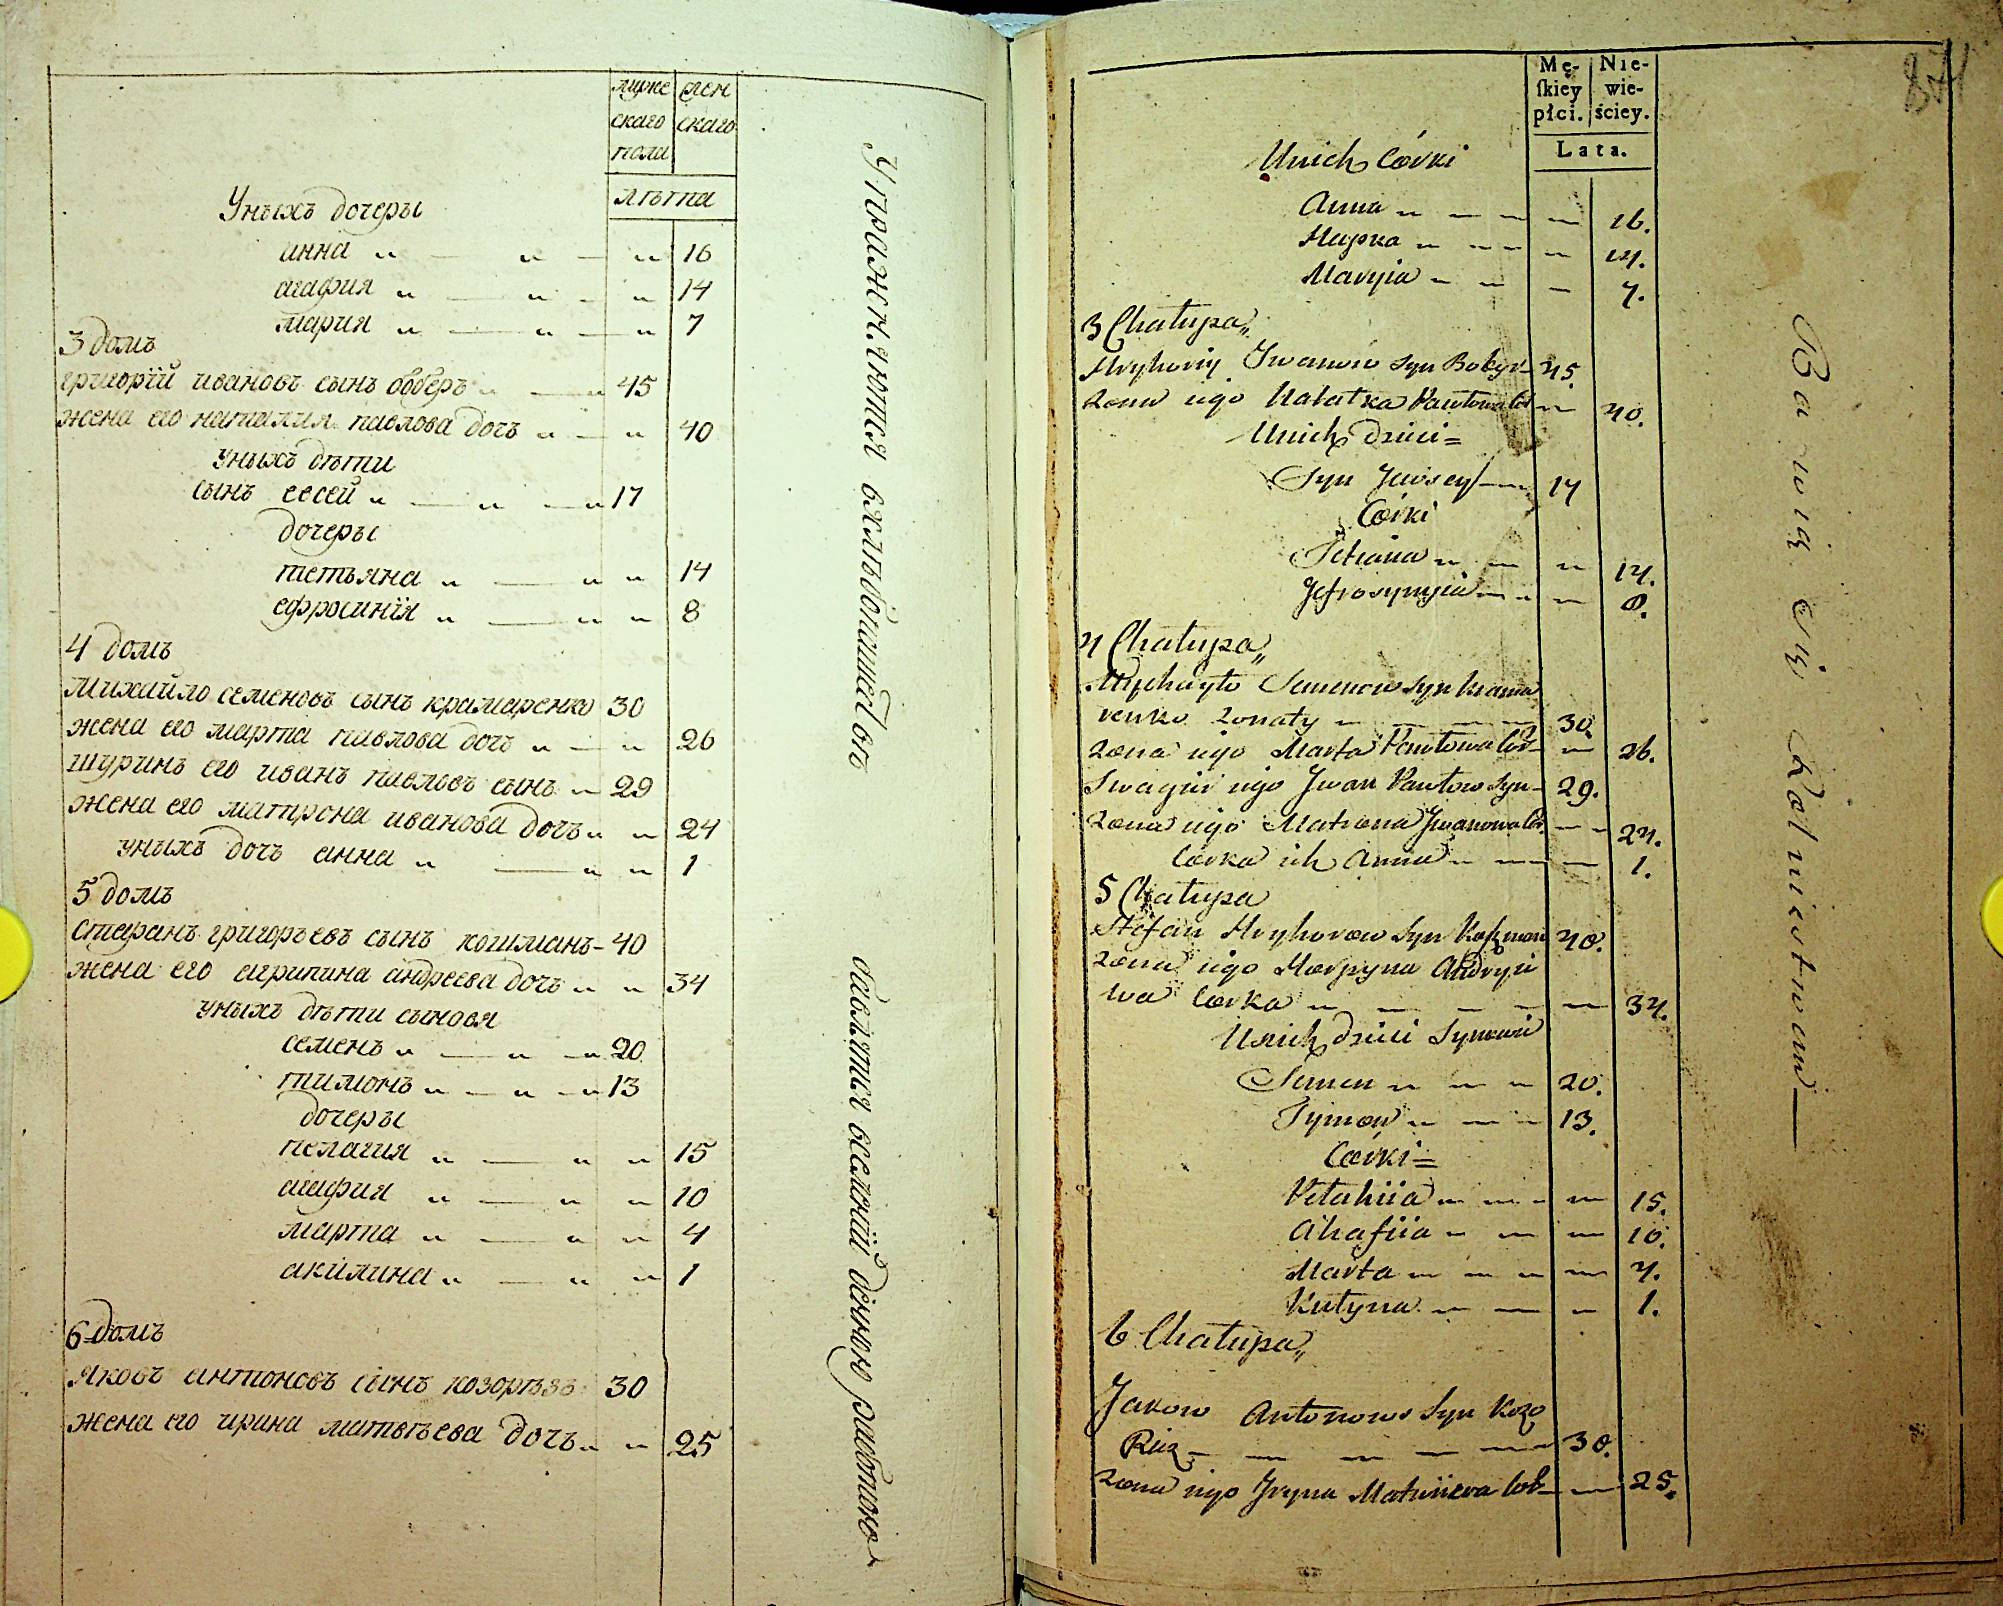 муже
скаго
пола
жен
скаго
лѣта
Уныхъ дочеры
анна 16
агафия 14
мария 7
3 домъ
григорій ивановъ сынъ бобёръ 45
жена его наталия павлова дочь 40
уныхъ дѣти
сынъ евсей 17
дочеры
тетьяна 14
ефросинія 8
4 домъ
Михайло семеновъ сынъ крамаренко 30
жена его марта павлова дочь 26
шуринъ его иванъ павловъ сынъ 29
жена его матрона иванова дочь 24
уныхъ дочь анна 1
5 домъ
стефанъ григорьевъ сынъ кошманъ 40
жена его агрипина андреева дочь 34
уныхъ дѣти сыновя
семенъ 20
тимонъ 13
дочеры
пелагия 15
агафия 10
марта 4
акилина 1
6 домъ
Яковъ антоновъ сынъ козорѣзъ 30
жена его ирина матвѣева дочь 25
Упражняются вхлѣбопашество
874
Mę-
skiey
płci.
Nie-
wie-
ściey.
Lata.
Unich Córki
Anna 16.
Hapka 14.
Maryia 7.
3 Chałupa
Hryhoriy Iwanow Syn Bobyr 45.
Zona iego Natałka Pawłowa Cór 40.
Unich dzieci
Syn Jewsey 17
Córki
Tetiana 14.
Jefrosynyia 8.
4 Chałupa
Mychayło Semenow Syn Krama
renko Zonaty 30.
Zona iego Marta Pawłowa Cór 26.
Swagier iego Jwan Pawłow Syn 29.
Zona iego Matrona Jwanowa Cór. 24.
Córka ich Anna 1.
5 Chałupa
Stefan Hryhorow Syn Koszman 40.
Zona iego Horpyna Andryie
wa Corka 34.
Unich dzieci Synowie
Semen 20.
Tymon 13.
Corki
Pełahiia 15.
Ahafiia 10.
Marta 4.
Kulyna 1.
6 Chałupa
Jakow Antonow Syn Kozo
Riz 30.
Zona iego Jryna Matwiiewa Cór 25.
Bawią się Rolnictwem